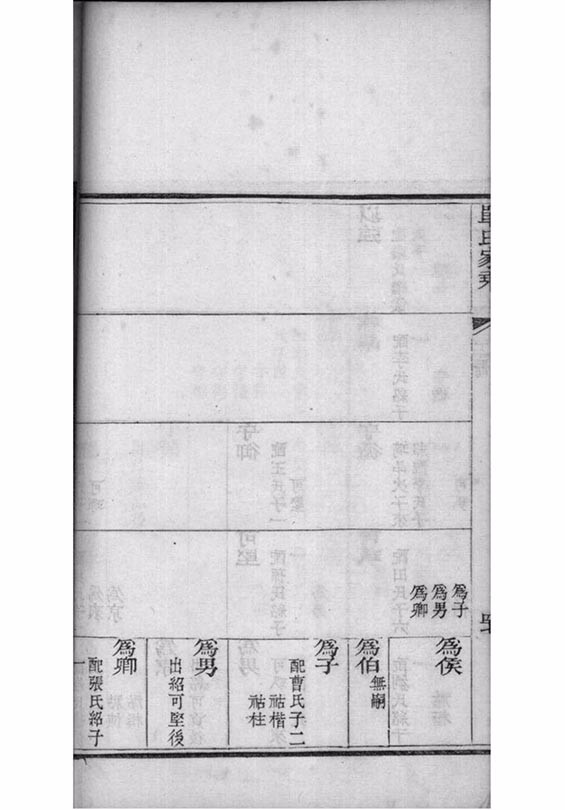 氏家乘
爲子
爲男
爲卿
爲侯
爲伯
無嗣
爲子
配曹氏子二
祜楷
祜柱
爲男
出紹可堅後
爲卿
配張氏紹子
一